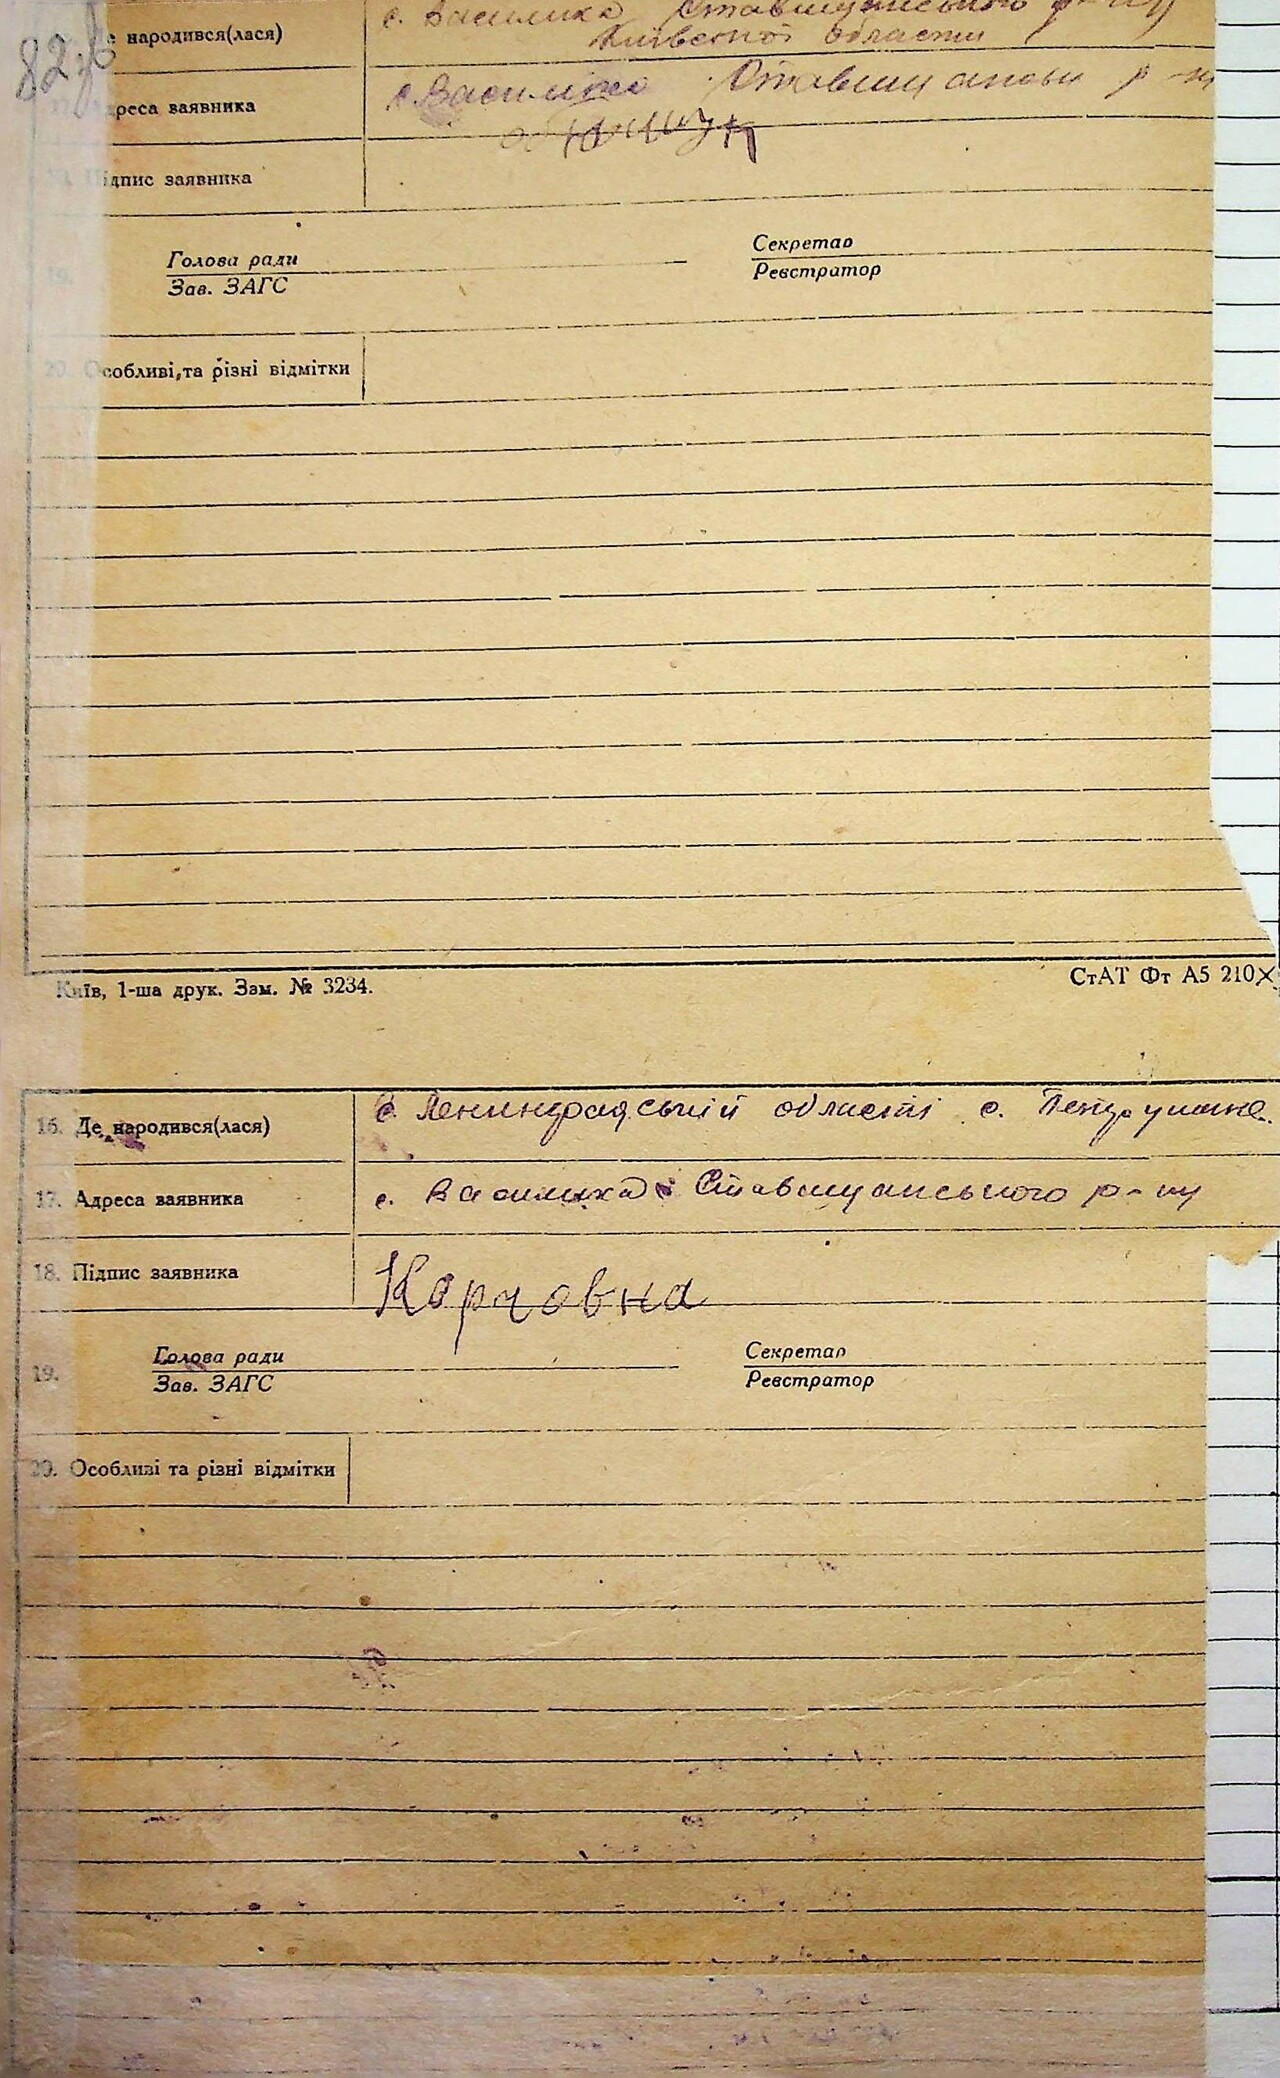 82
е народився(лася) с. Василиха Ставищанського р-ну
Київської области
адреса заявника с. Василиха Ставищанськ р-н
ідпис заявника
Голова ради
Зав. ЗАГС
Секретар
Реєстратор
20. Особливі та різні відмітки
Київ, 1-ша друк. Зам. № 3234.
СтАТ Фт А5 210Х
16. Де народився(лася) с. Ленинградській області с.
17. Адреса заявника с. Василиха Ставищанського р-ну
18. Підпис заявника Корчовна
19. Голова ради
Зав. ЗАГС
Секретар
Реєстратор
20. Особливі та різні відмітки